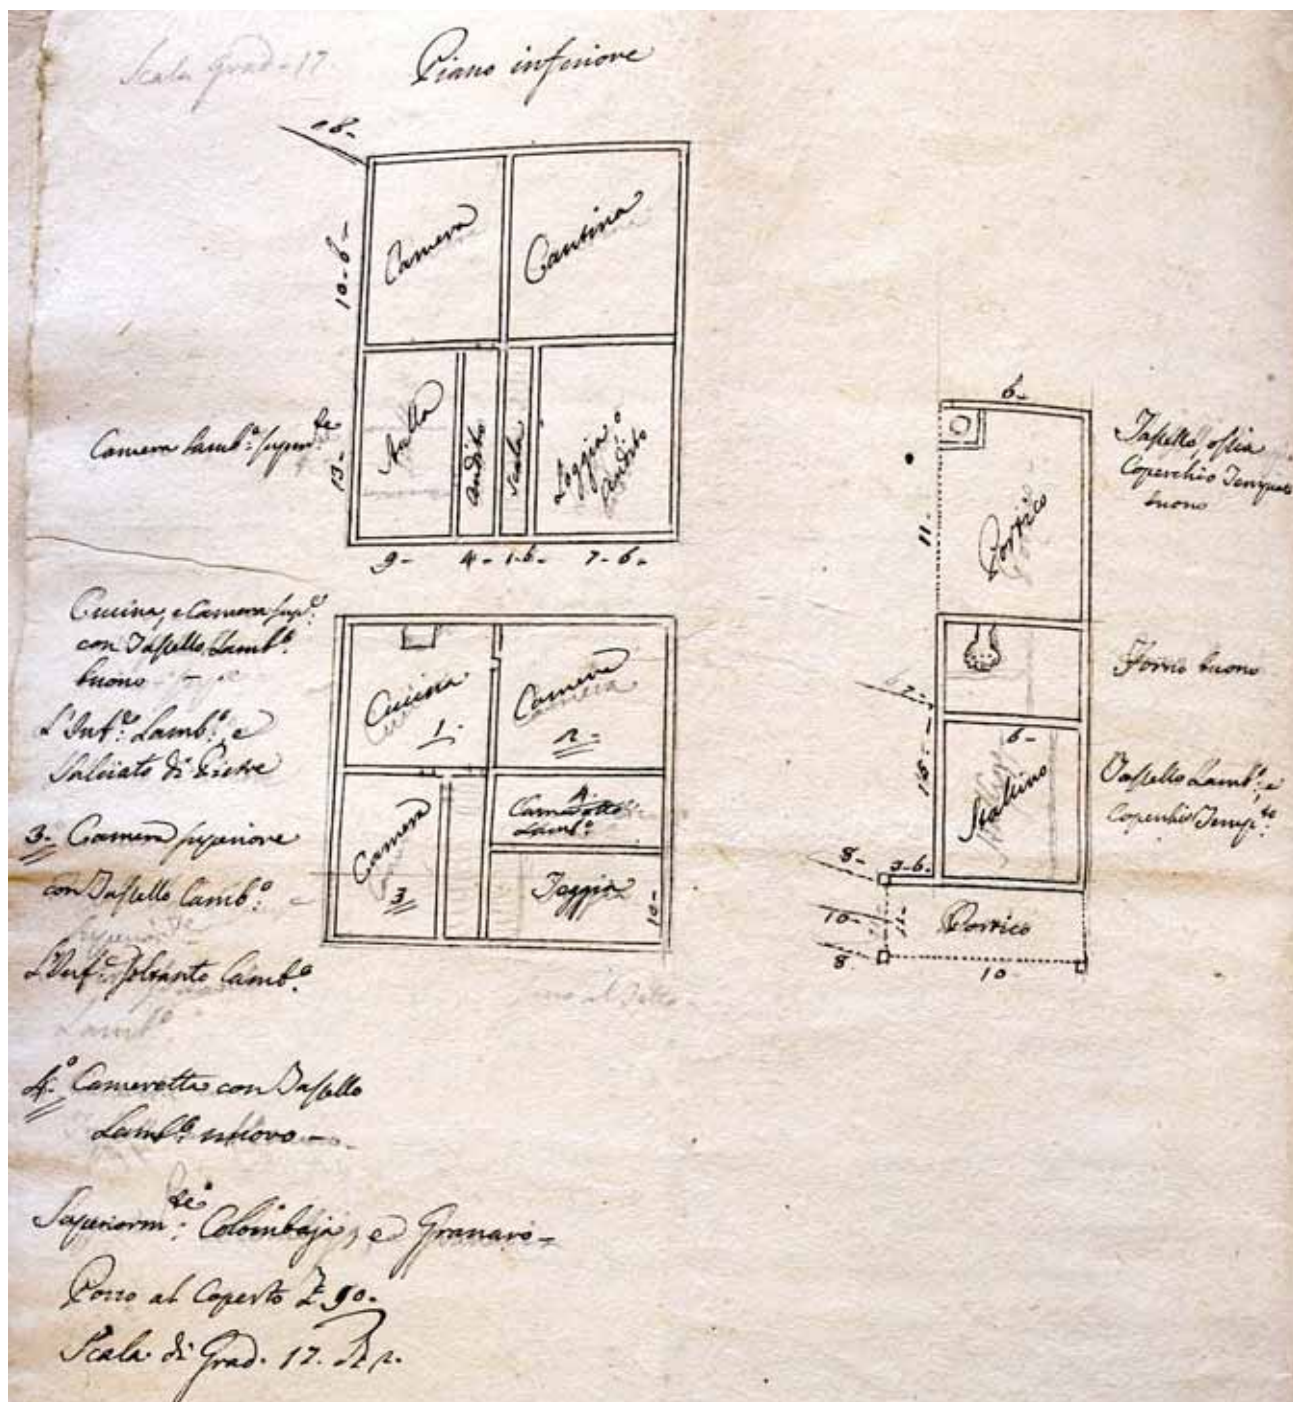 Scala Grad. 17.
Piano inferiore
10-6-
Camera
Cantina
13-
Stalla
Andito
Scala
Loggia o
Andito
9- 4- 1-6- 7-6-
Camera Lamb.ª Superm.te
Cucina, e Camera sup.e
con Tassello Lamb.º
buono
L'Inf.e Lamb.º e
Salicato di Pietre
3- Camera superiore
con Tassello Lamb.º
L'Inf.e soltanto Lamb.º
Lamb.º
4.º Cameretta con Tassello
Lamb.º nuovo-
Superiorm.te Colombaja, e Granaro-
Pozzo al Coperto
Scala di Grad. 17.
Cucina
1.
Camera
2-
Camera
3
4.
Lamb.º
Loggia
10-
6-
11-
Portico
Tassello, ossia
Coperchio
buono
Forno buono
7-
6-
Stallino
Tassello Lamb.º, e
Coperchio
8-
3-6-
10-
11-
Portico
8
10-